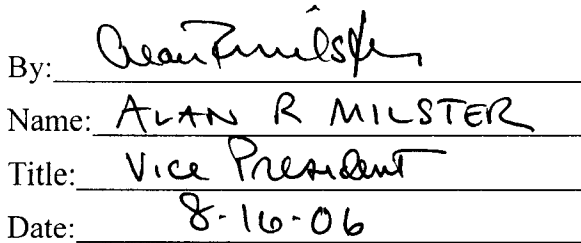 By: Alan R Milster
Name: ALAN R MILSTER
Title: Vice President
Date: 8-16-06